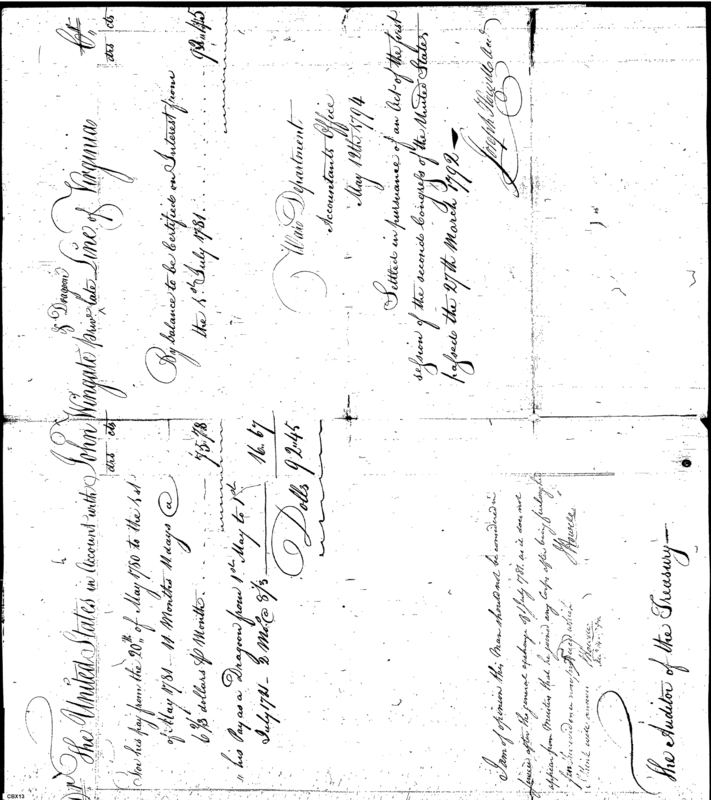 Dr. The United States in Account with John Wingate privt. & Dragoon late Line of Virginia Cr.
drs cts
For his pay from the 20th of May 1780 to the 1st
of May 1781 - 11 Months 11 days @
6 2/3 dollars Month 75.78
" his Pay as a Dragoon from 1st May to 1st
July 1781 - 2 Mo. @ 8 1/3 16.67
Dolls 92.45
drs cts
By balance to be Certified on Interest from
the 1st July 1781 92.45
War Department
Accountants Office
May 12th 1794
Settled in pursuance of an Act of the first
session of the second Congress of the United States,
passed the 27th March 1792
Joseph Howell
I am of opinion this Man should not be considered in
service after the general exchange of July 1781 as it does not
appear from Muster that he joined any Corps after being furloughed
J Howell
for the evidence
I think
The Auditor of the Treasury
CBX13